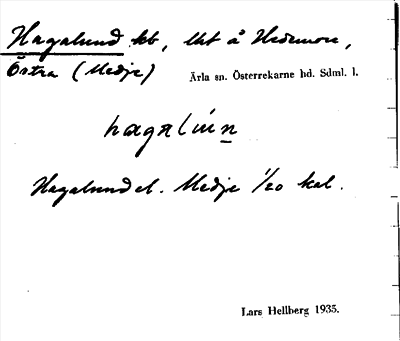 Hagalund tb, lht å Hedemore,
Östra (Medje) Ärla sn. Österrekarne hd. Sdml. l.
hagalún
Hagalund el. Medje 1/20 kal.
Lars Hellberg 1935.